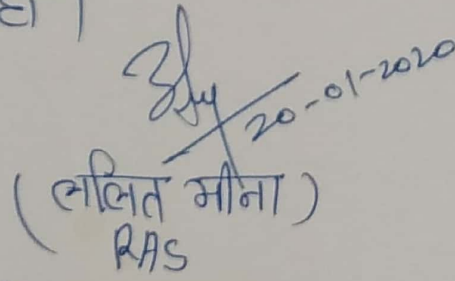 20-01-2020
(ललित मीना)
RAS